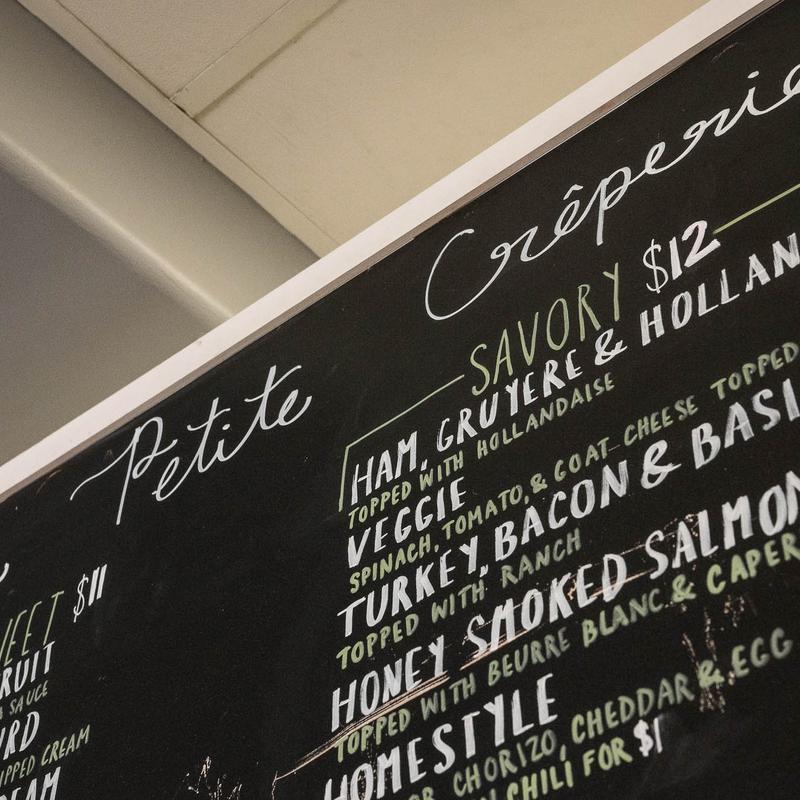 Petite
Crêperie
SAVORY $12
HAM, GRUYERE & HOLLAN
TOPPED WITH HOLLANDAISE
VEGGIE
SPINACH, TOMATO, & GOAT CHEESE TOPPED
TURKEY, BACON & BASI
TOPPED WITH RANCH
HONEY SMOKED SALMON
TOPPED WITH BEURRE BLANC & CAPER
HOMESTYLE
OR CHORIZO, CHEDDAR & EGG
CHILI FOR $1
EET $11
RUIT
SAUCE
RD
IPPED CREAM
EAM